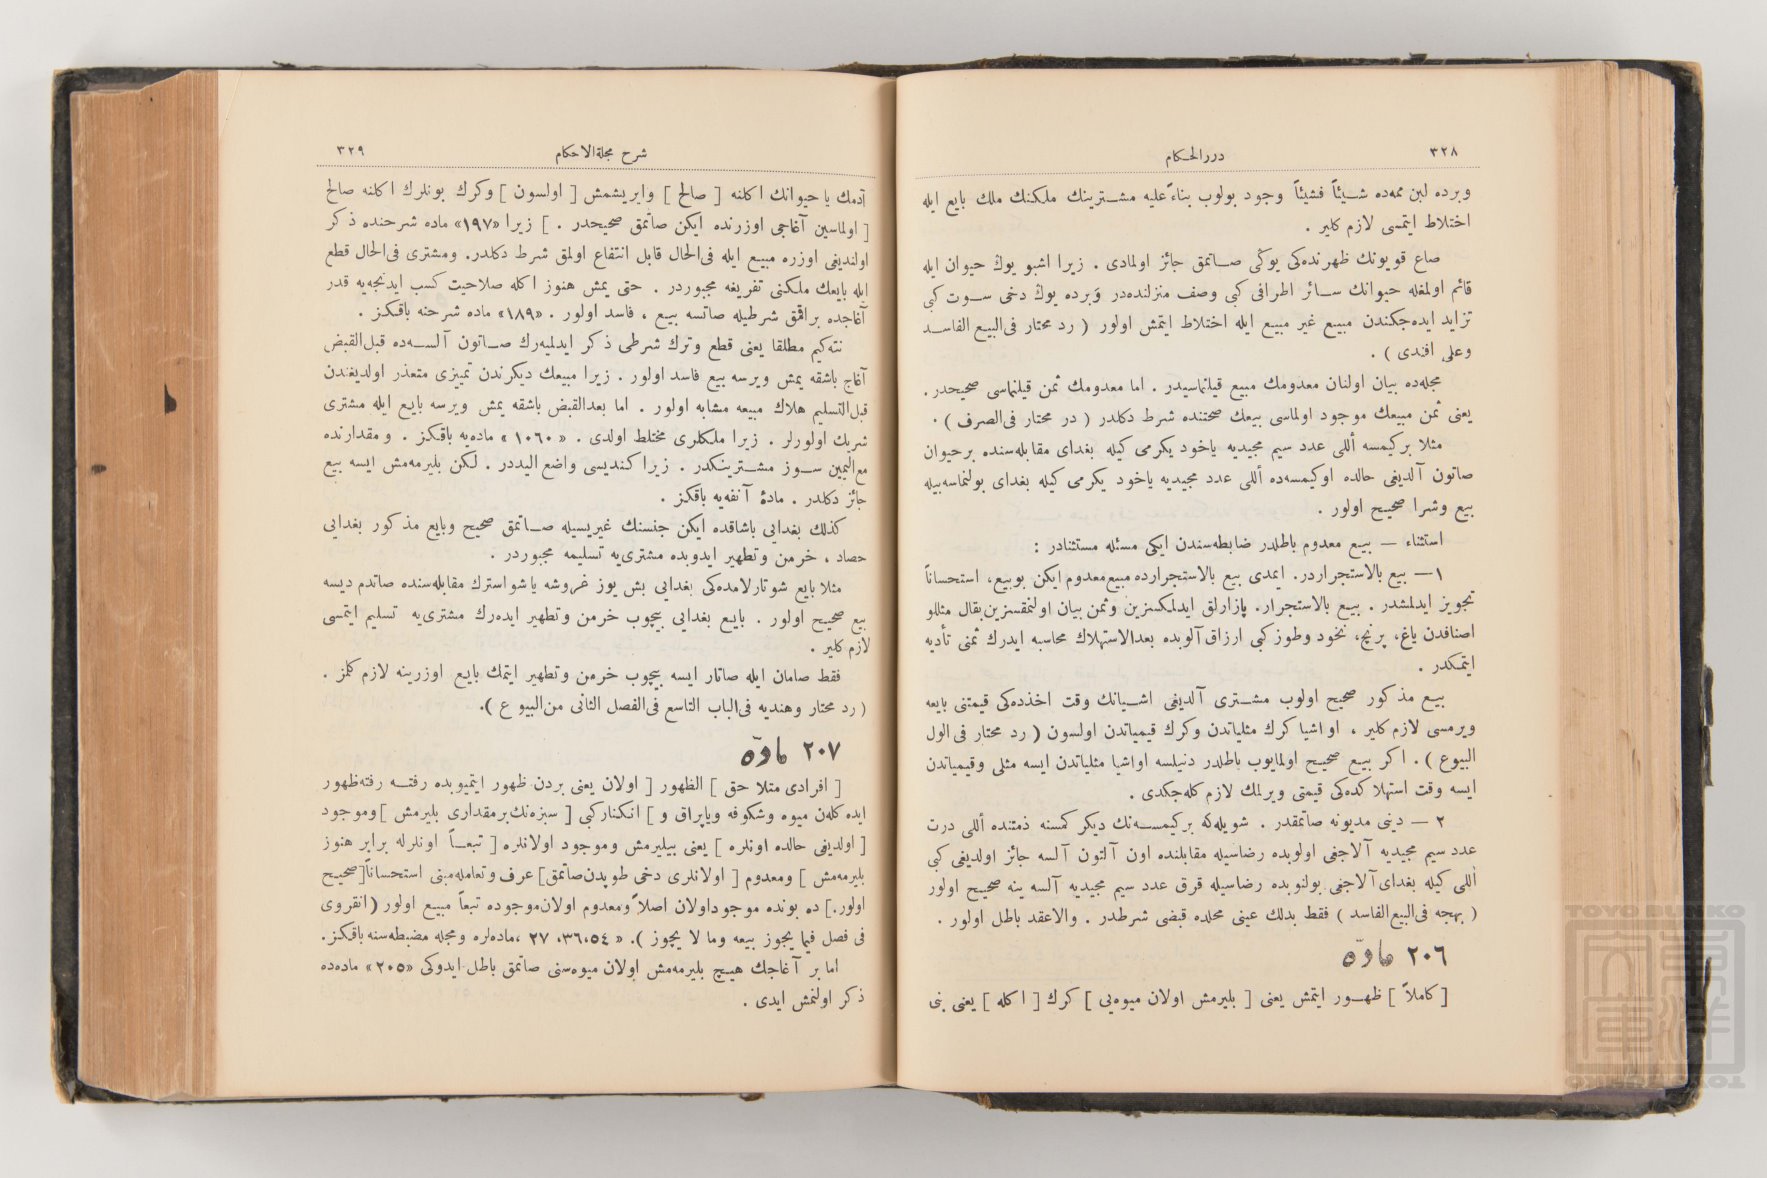 ٣٢٨
دررالحكام
وبرده لبن ممه‌ده شيئاً فشيئاً وجود بولوب بناءً عليه مشترينك ملكنك ملك بايع ايله
اختلاط ايتمسى لازم كلير .
صاغ قويونك ظهرنده‌كى يوكى صاتمق جائز اولمادى . زيرا اشبو يوك حيوان ايله
قائم اولمغله حيوانك سائر اطرافى كبى وصف منزلنده‌در وَبرده يوك دخى سوت كبى
تزايد ايده‌جكندن مبيع غير مبيع ايله اختلاط ايتمش اولور ( رد محتار فى‌البيع الفاسد
وعلى افندى ) .
مجله‌ده بيان اولنان معدومك مبيع قيلنماسيدر . اما معدومك ثمن قيلنماسى صحيحدر .
يعنى ثمن مبيعك موجود اولماسى بيعك صحتنده شرط دكلدر ( در محتار فى‌الصرف ) .
مثلا بركيمسه أللى عدد سيم مجيديه ياخود يكرمى كيله بغداى مقابله‌سنده برحيوان
صاتون آلديغى حالده اوكيمسه‌ده أللى عدد مجيديه ياخود يكرمى كيله بغداى بولنماسه‌بيله
بيع وشرا صحيح اولور .
استثناء — بيع معدوم باطلدر ضابطه‌سندن ايكى مسئله مستثنادر :
١ — بيع بالاستجراردر. ايمدى بيع بالاستجرارده مبيع معدوم ايكن بوبيع، استحساناً
تجويز ايدلمشدر . بيع بالاستجرار، پازارلق ايدلمكسزين وثمن بيان اولنمقسزين بقال مثللو
اصنافدن ياغ، پرنج، نخود وطوز كبى ارزاق آلوبده بعدالاستهلاك محاسبه ايدرك ثمنى تأديه
ايتمكدر .
بيع مذكور صحيح اولوب مشترى آلديغى اشيانك وقت اخذده‌كى قيمتنى بايعه
ويرمسى لازم كلير ، اواشيا كرك مثلياتدن وكرك قيمياتدن اولسون ( رد محتار فى الول
البيوع ) . اكر بيع صحيح اولمايوب باطلدر دنيلسه اواشيا مثلياتدن ايسه مثلى وقيمياتدن
ايسه وقت استهلاكده‌كى قيمتى ويرلمك لازم كله‌جكدى .
٢ — دينى مديونه صاتمقدر . شويله‌كه بركيمسه‌نك ديكر كمسنه ذمتنده أللى درت
عدد سيم مجيديه آلاجغى اولوبده رضاسيله مقابلنده اون آلتون آلسه جائز اولديغى كبى
أللى كيله بغداى آلاجغى بولنوبده رضاسيله قرق عدد سيم مجيديه آلسه ينه صحيح اولور
( بهجه فى‌البيع الفاسد ) فقط بدلك عينى محلده قبضى شرطدر . والاعقد باطل اولور .
٢٠٦ ماده
[ كاملاً ] ظهور ايتمش يعنى [ بليرمش اولان ميوه‌يى ] كرك [ اكله ] يعنى بنى
٣٢٩
شرح مجلةالاحكام
آدمك يا حيوانك اكلنه [ صالح ] وايريشمش [ اولسون ] وكرك بونلرك اكلنه صالح
[ اولماسين آغاجى اوزرنده ايكن صاتمق صحيحدر . ] زيرا «١٩٧» ماده شرحنده ذكر
اولنديغى اوزره مبيع ايله فى‌الحال قابل انتفاع اولمق شرط دكلدر. ومشترى فى‌الحال قطع
ايله بايعك ملكنى تفريغه مجبوردر . حتى يمش هنوز اكله صلاحيت كسب ايدنجه‌يه قدر
آغاجده براقمق شرطيله صاتسه بيع ، فاسد اولور . «١٨٩» ماده شرحنه باقكز .
نته‌كيم مطلقا يعنى قطع وترك شرطى ذكر ايدلميه‌رك صاتون آلسه‌ده قبل‌القبض
آغاج باشقه يمش ويرسه بيع فاسد اولور . زيرا مبيعك ديكرندن تمييزى متعذر اولديغندن
قبل‌التسليم هلاك مبيعه مشابه اولور . اما بعدالقبض باشقه يمش ويرسه بايع ايله مشترى
شريك اولورلر . زيرا ملكلرى مختلط اولدى . « ١٠٦٠ » ماده‌يه باقكز . ومقدارنده
مع‌اليمين سوز مشترينكدر . زيرا كنديسى واضع اليددر . لكن بليرمه‌مش ايسه بيع
جائز دكلدر . مادهٔ آنفه‌يه باقكز .
كذلك بغدايى باشاقده ايكن جنسنك غيريسيله صاتمق صحيح وبايع مذكور بغدايى
حصاد ، خرمن وتطهير ايدوبده مشترى‌يه تسليمه مجبوردر .
مثلا بايع شوتارلامده‌كى بغدايى بش يوز غروشه ياشواسترك مقابله‌سنده صاتدم ديسه
بيع صحيح اولور . بايع بغدايى بيچوب خرمن وتطهير ايده‌رك مشترى‌يه تسليم ايتمسى
لازم كلير .
فقط صامان ايله صاتار ايسه بيچوب خرمن وتطهير ايتمك بايع اوزرينه لازم كلمز .
( رد محتار وهنديه فى‌الباب التاسع فى‌الفصل الثانى من‌البيوع ).
٢٠٧ ماده
[ افرادى متلاحق ] الظهور [ اولان يعنى بردن ظهور ايتميوبده رفته رفته ظهور
ايده كلن ميوه وشكوفه وياپراق و ] انكناركبى [ سبزه‌نك برمقدارى بليرمش ] وموجود
[ اولديغى حالده اونلره ] يعنى بيليرمش وموجود اولانلره [ تبعاً اونلرله برابر هنوز
بليرمه‌مش ] ومعدوم [ اولانلرى دخى طوپدن صاتمق ] عرف وتعامله مبنى استحساناً [ صحيح
اولور. ] ده بونده موجوداولان اصلاً ومعدوم اولان موجوده تبعاً مبيع اولور ( انقروى
فى فصل فيما يجوز بيعه وما لا يجوز ). « ٣٦،٥٤، ٢٧ ،ماده‌لره ومجله مضبطه‌سنه باقكز .
اما بر آغاجك هيچ بليرمه‌مش اولان ميوه‌سنى صاتمق باطل ايدوكى «٢٠٥» ماده‌ده
ذكر اولنمش ايدى .
TOYO BUNKO